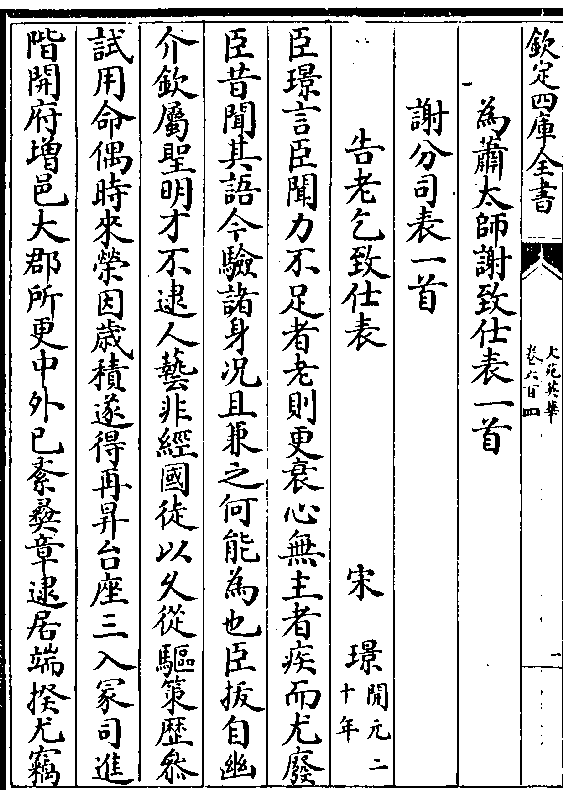 欽定四庫全書
文苑英華
卷六百四
一
為蕭太師謝致仕表一首
謝分司表一首
告老乞致仕表 宋璟 開元二十年
臣璟言臣聞力不足者老則更衰心無主者疾而尤廢
臣昔聞其語今驗諸身况且兼之何能為也臣拔自幽
介欽屬聖明才不逮人藝非經國徒以久從驅策歴叅
試用命偶時來榮因歳積遂得再昇台座三入冢司進
階開府增邑大郡所更中外已紊彛章逮居端揆尤竊